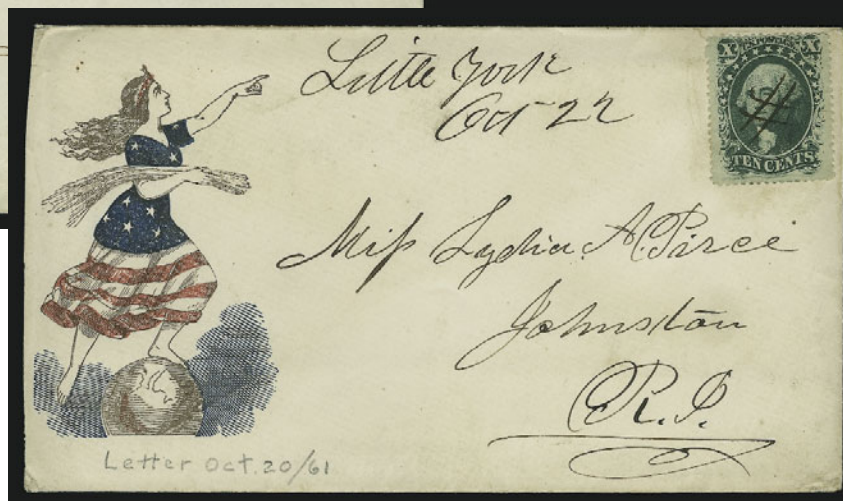 Little York
Oct 22
X U.S. POSTAGE X
TEN CENTS
Miss Lydia A. Pirce
Johnston
R.I.
Letter Oct. 20/61